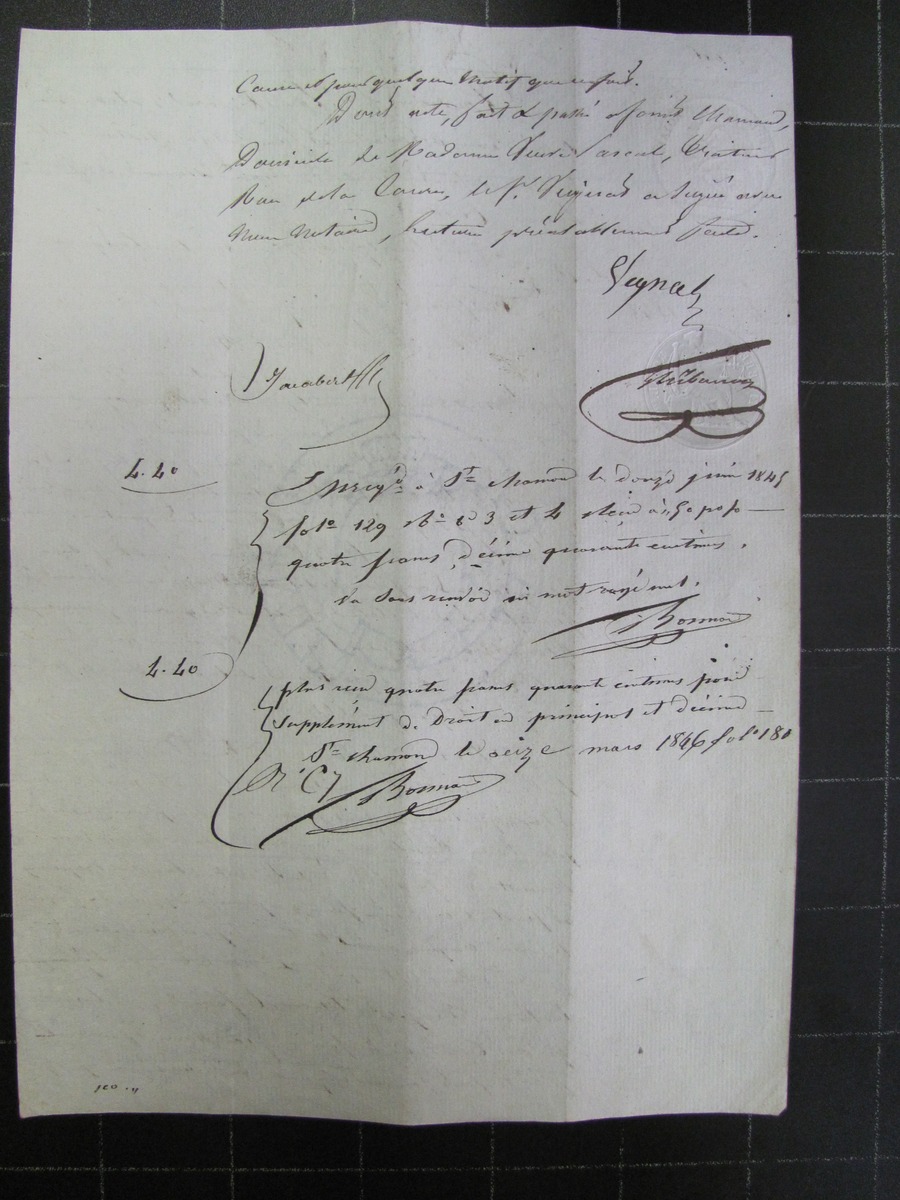 Cause et pour quelque motif que ce fut.
Dont acte, fait & passé à Saint Chamond,
Domicile de Madame Veuve Pascal, Traiteur
Rue de la , le Sr Vignal a signé avec
nous Notaires, lecture préalablement faite.
Vignal
Jacobert
4.40
Enregé à St chamond le douze juin 1845
folo 129 Vo Cs 3 et 4 reçu à
quatre francs, décime quarante centimes,
mot rayé nul.
4.40
plus reçu quatre francs quarante centimes pour
supplément de Droit en principal et décime
St chamond le seize mars 1846 folo 180